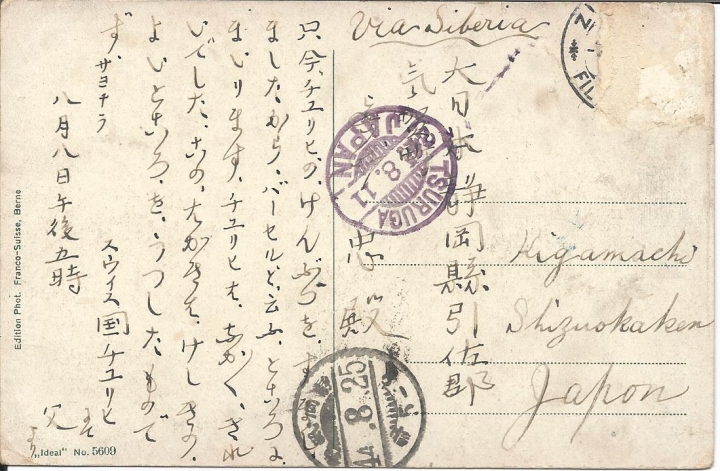 Via Siberia
大日本静岡縣引佐郡
気
忠殿
Kigamachi
Shizuokaken
Japon
只今、チユリヒの、けんぶつを、す
ましたから、バーセルと、云ふ、ところへ
まいります、チユリヒは、なかく、きれ
いでした、この、はがきは、けしきの、
よいところ、を、うつした、もので
す、サヨナラ
八月八日午後五時
スウイス国チユリヒ
父より
TSURUGA
JAPAN
24.8.11
44.8.25
Edition Phot. Franco-Suisse, Berne
„Ideal" No. 5609